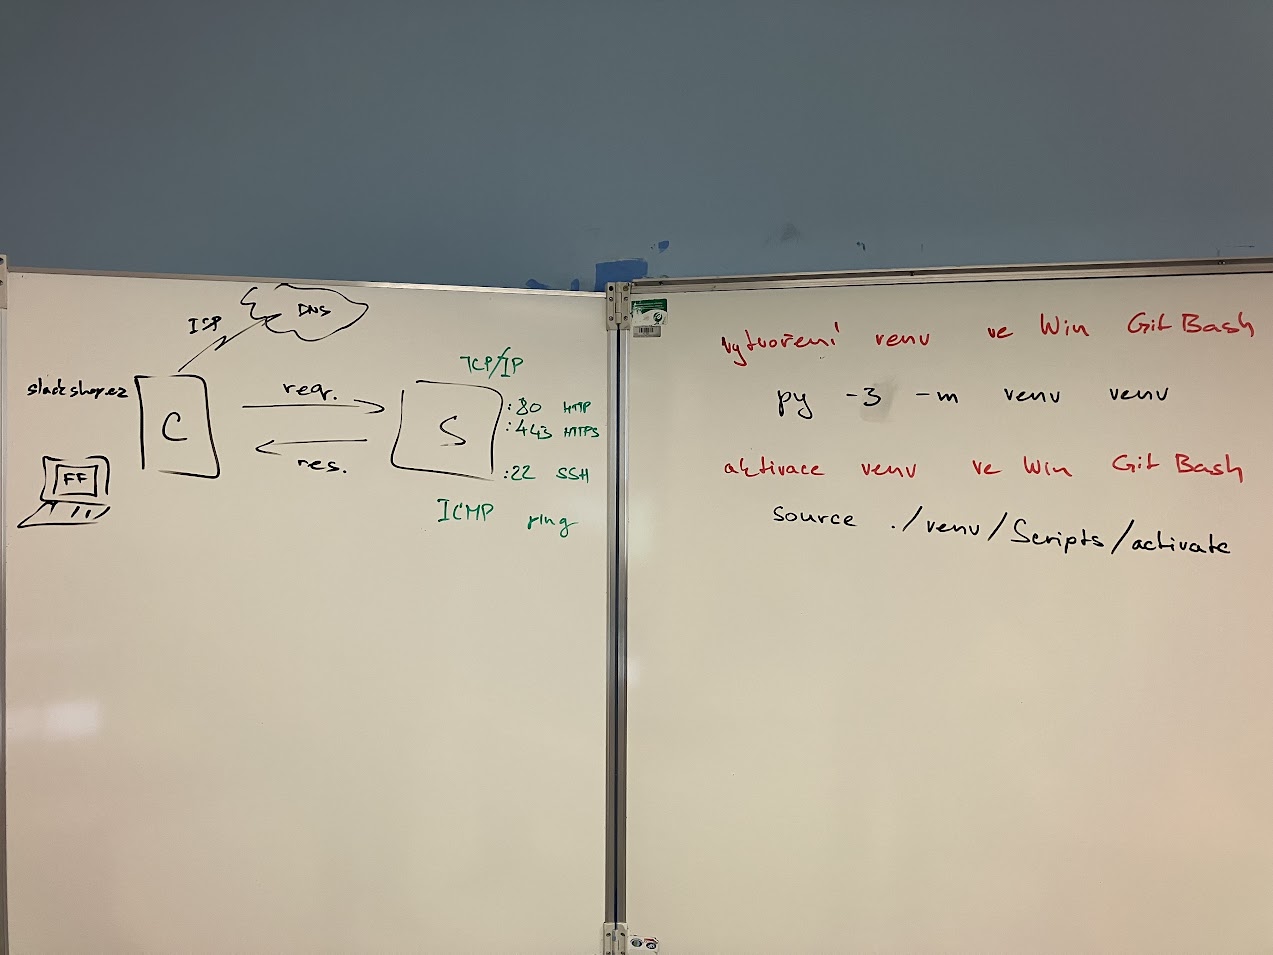 DNS
ISP
sladkshop.cz
C
req.
res.
FF
TCP/IP
S
:80 HTTP
:443 HTTPS
:22 SSH
ICMP ping
vytvoření venv ve Win Git Bash
py -3 -m venv venv
aktivace venv ve Win Git Bash
source ./venv/Scripts/activate